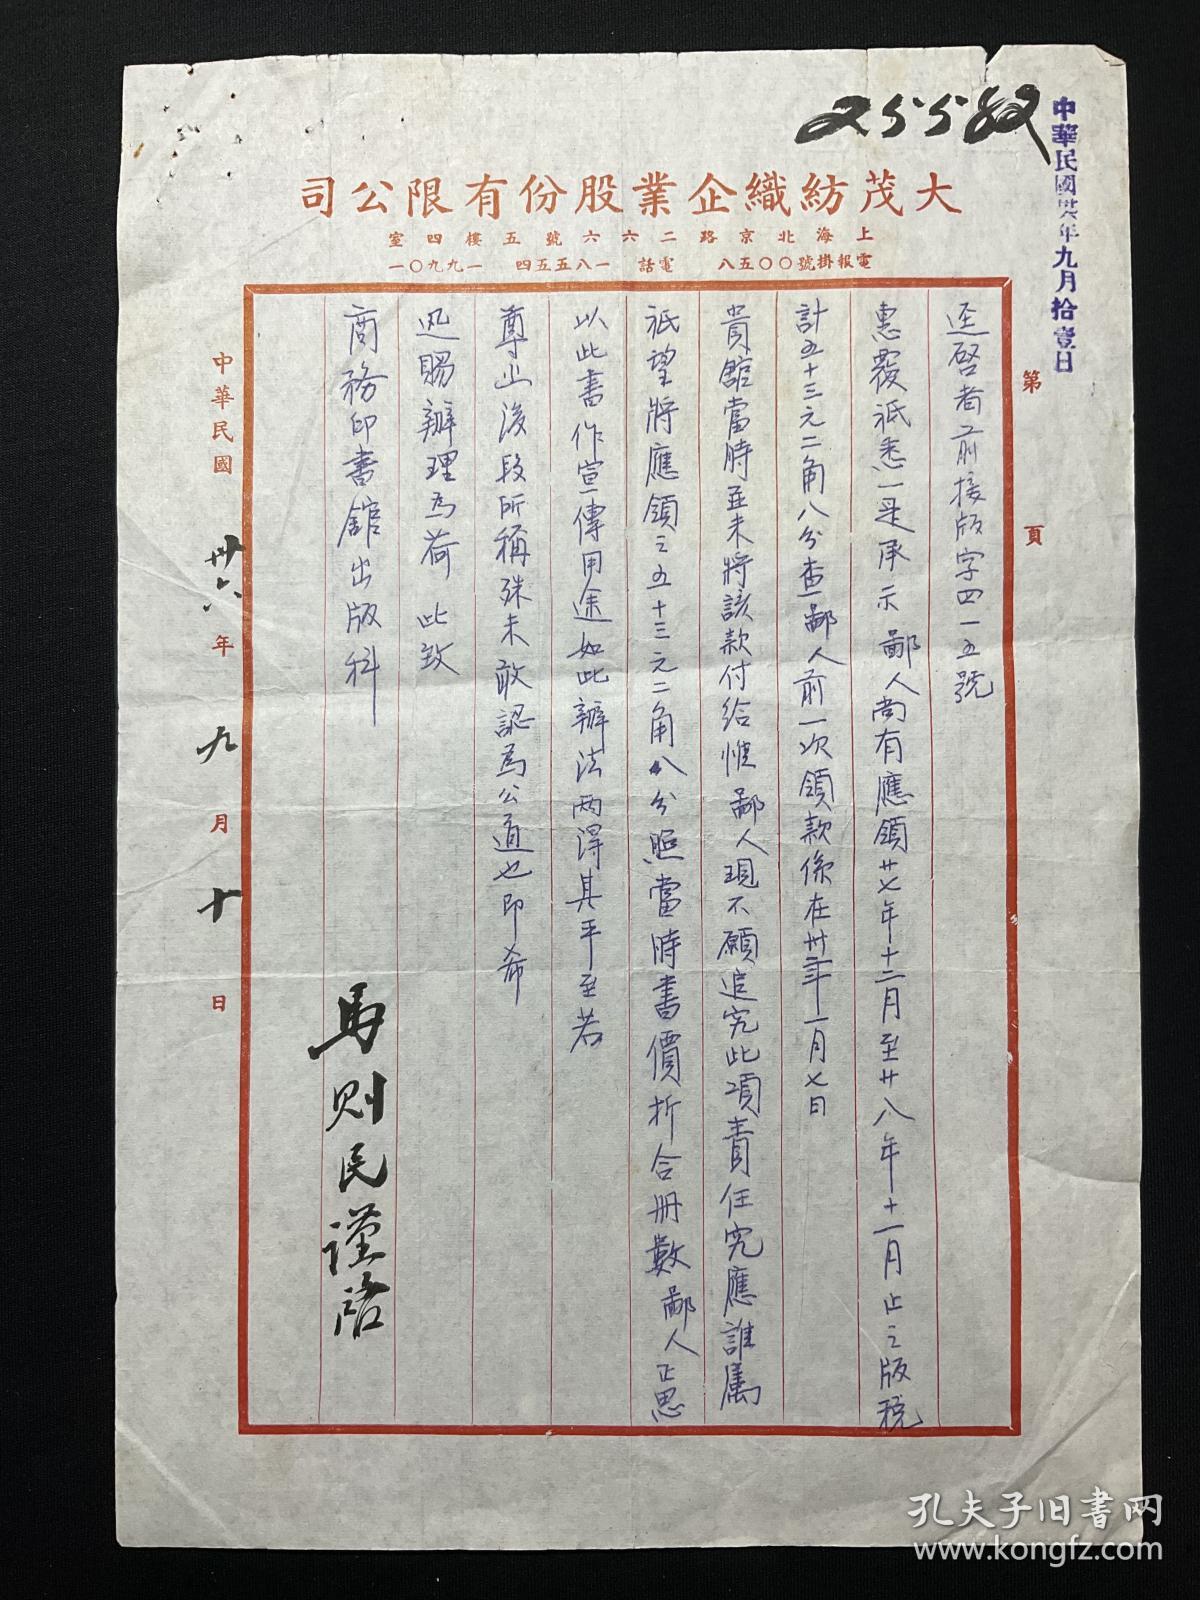 25582
中華民國卅六年九月拾壹日
大茂紡織企業股份有限公司
上海北京路二六六號五樓四室
電報掛號五〇〇五八 電話 一八五五四 一九九〇一
第 頁
逕啓者前接版字四一五號
惠覆祇悉一是承示鄙人尚有應領廿七年十二月至廿八年十一月止之版稅
計五十三元二角八分查鄙人前一次領款係在卅年一月七日
貴館當時並未將該款付給惟鄙人現不願追究此項責任究應誰屬
祇望將應領之五十三元二角八分照當時書價折合冊數鄙人正思
以此書作宣傳用途如此辦法兩得其平至若
尊止後段所稱殊未敢認為公道也即希
迅賜辦理為荷 此致
商務印書館出版科
馬則民謹啓
中華民國卅六年九月十日
孔夫子旧书网
www.kongfz.com